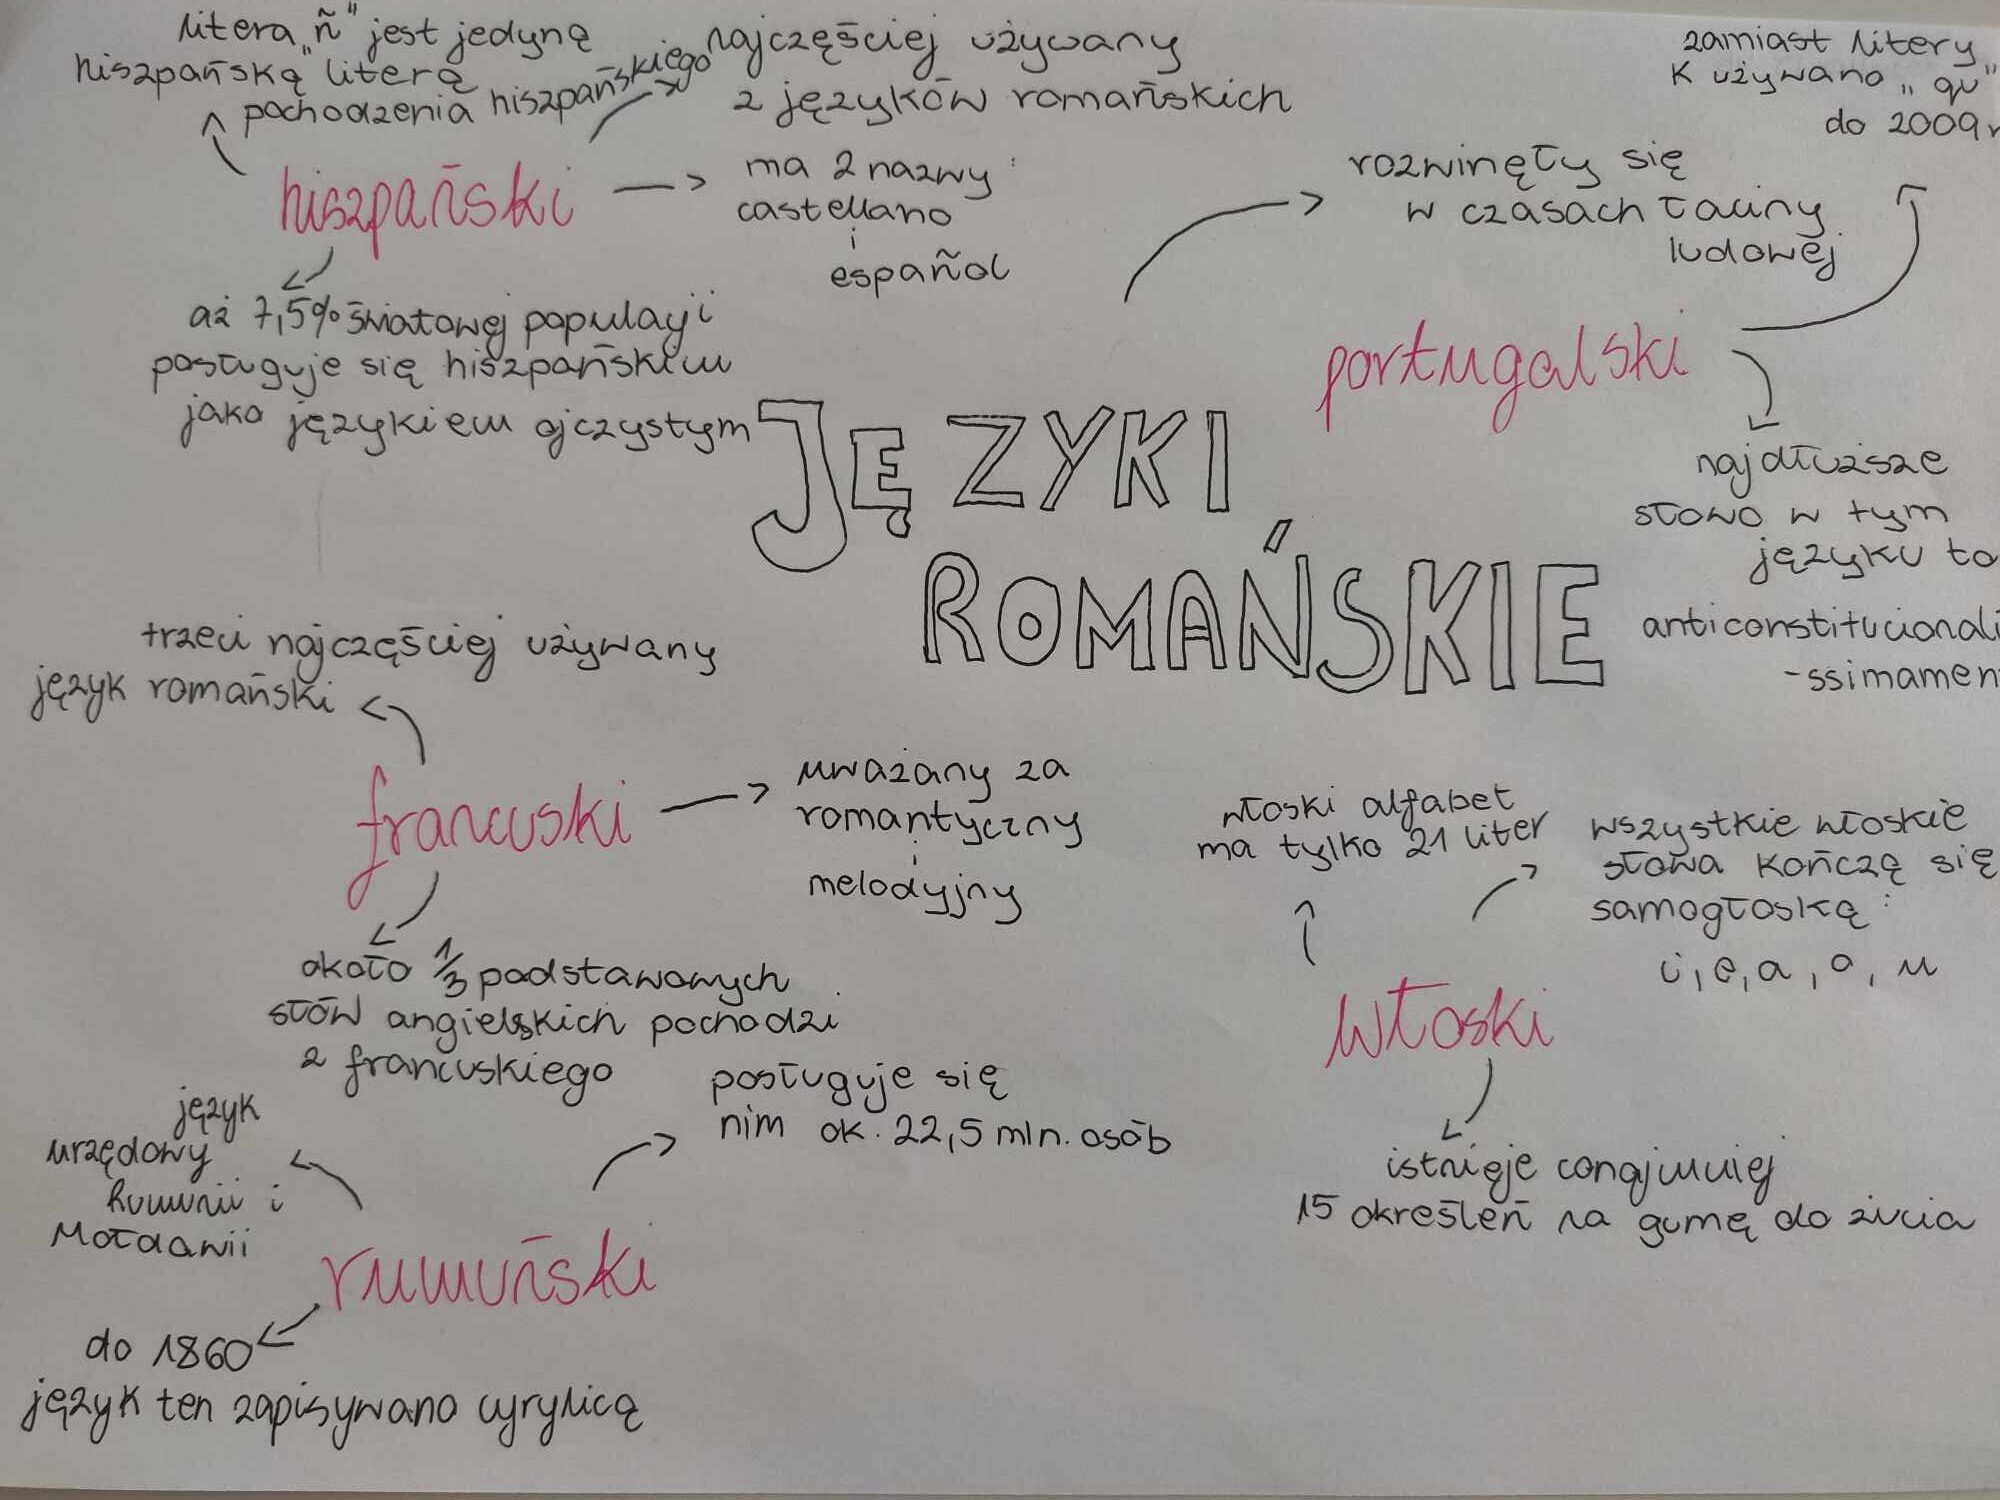 litera „ñ" jest jedyną
hiszpańską literą
pochodzenia hiszpańskiego
najczęściej używany
z języków romańskich
hiszpański
ma 2 nazwy:
castellano
i
español
aż 7,5% światowej populacji
posługuje się hiszpańskim
jako językiem ojczystym
zamiast litery
K używano „qu"
do 2009r
rozwinęły się
w czasach łaciny
ludowej
portugalski
najdłuższe
słowo w tym
języku to
anticonstitucionali
-ssimamen
JĘZYKI
ROMAŃSKIE
trzeci najczęściej używany
język romański
francuski
uważany za
romantyczny
i
melodyjny
około 1/3 podstawowych
słów angielskich pochodzi
z francuskiego
włoski alfabet
ma tylko 21 liter
wszystkie włoskie
słowa kończą się
samogłoską:
i, e, a, o, u
włoski
istnieje conajmniej
15 określeń na gumę do żucia
język
urzędowy
Rumunii i
Mołdawii
posługuje się
nim ok. 22,5 mln. osób
rumuński
do 1860
język ten zapisywano cyrylicą